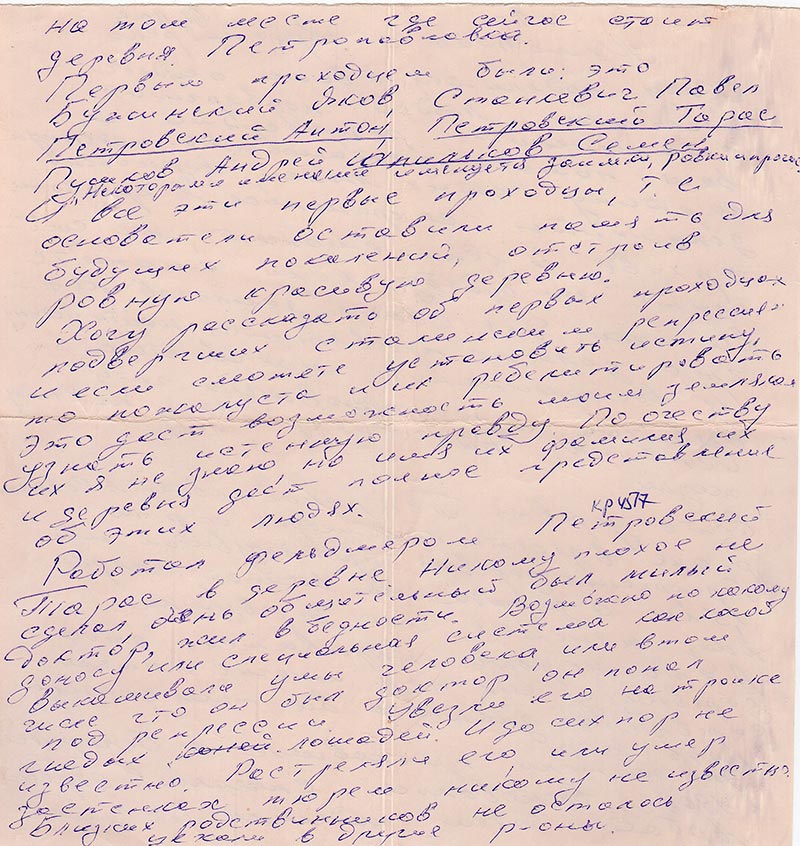 на том месте где сейчас стоит
деревня. Петропавловка.
Первым проходцем были: это
Бужинский Яков, Станкевич Павел
Петровский Антон, Петровский Тарас
Пушков Андрей Семен
Некоторыми именами заимки, ровки и прочие
Все эти первые проходцы, т.е
основатели оставили память для
будущих поколений, отстроив
ровную красивую деревню.
Хогу рассказато об первых проходцах
подвергших сталинским репрессиям
и если сможете установить истину,
то пожалуста и их ребелитировать
это даст возможность моим землякам
узнать истенную правду По очеству
их я не знаю, но имя их фамилия их
и деревня даст полное представление
об этих людях.
КР 4517
Работал фельдшером Петровский
Тарас в деревне. Никому плохое не
сделал, очень общительный был милый
доктор, жил в бедности. Возможно по какому
доносу или специальная система как косой
выкашивала умы человека, или в том
числе что он был доктор, он попал
под репрессии. Увезли его на тройке
гнедых коней лошадей. И до сих пор не
известно. Растреляли его или умер
застенках тюрем никому не известно.
Близких родственников не осталось
уехали в другие р-оны.